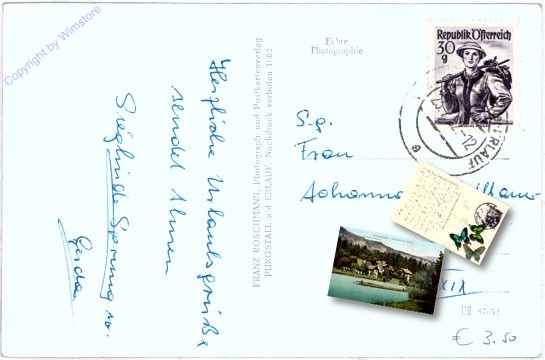 Copyright by Wimstore
Herzliche Urlaubsgrüße
sendet Ihnen
Sieglinde
Gerda
FRANZ ROSCHMANN, Photograph und Postkartenverlag
PURGSTALL a/d ERLAUF. Nachdruck verboten 1162
Echte
Photographie
Republik Österreich
30
g
ERLAUF
S.g.
Frau
Johanna
XIX
€ 3.50